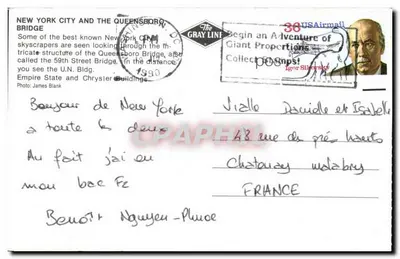 NEW YORK CITY AND THE QUEENSBORO
BRIDGE
Some of the best known New York City
skyscrapers are seen looking through the in-
tricate structure of the Queensboro Bridge, also
called the 59th Street Bridge. In the distance,
you see the U.N. Bldg.
Empire State and Chrysler Buildings.
Photo: James Blank
The
GRAY LINE
PM
1990
Begin an Adventure of
Giant Proportions
Collect Stamps!
36 USAirmail
Igor Sikorsky
Bonjour de New York
a toute les deux
Au fait j'ai eu
mon bac F2
Benoît Nguyen-Phuoc
Vialle Danielle et Isabelle
43 rue des prés hauts
Chatenay malabry
FRANCE
CPAPHIL